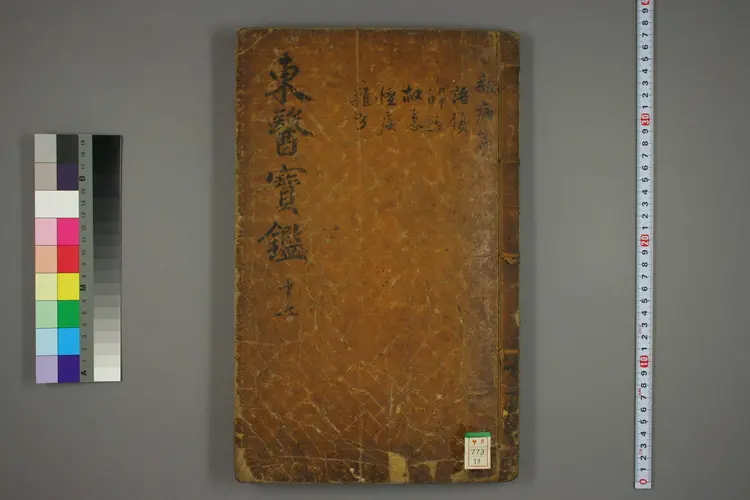 雜病篇
諸傷
解毒
救急
怪疾
雜方
東醫寶鑑
773